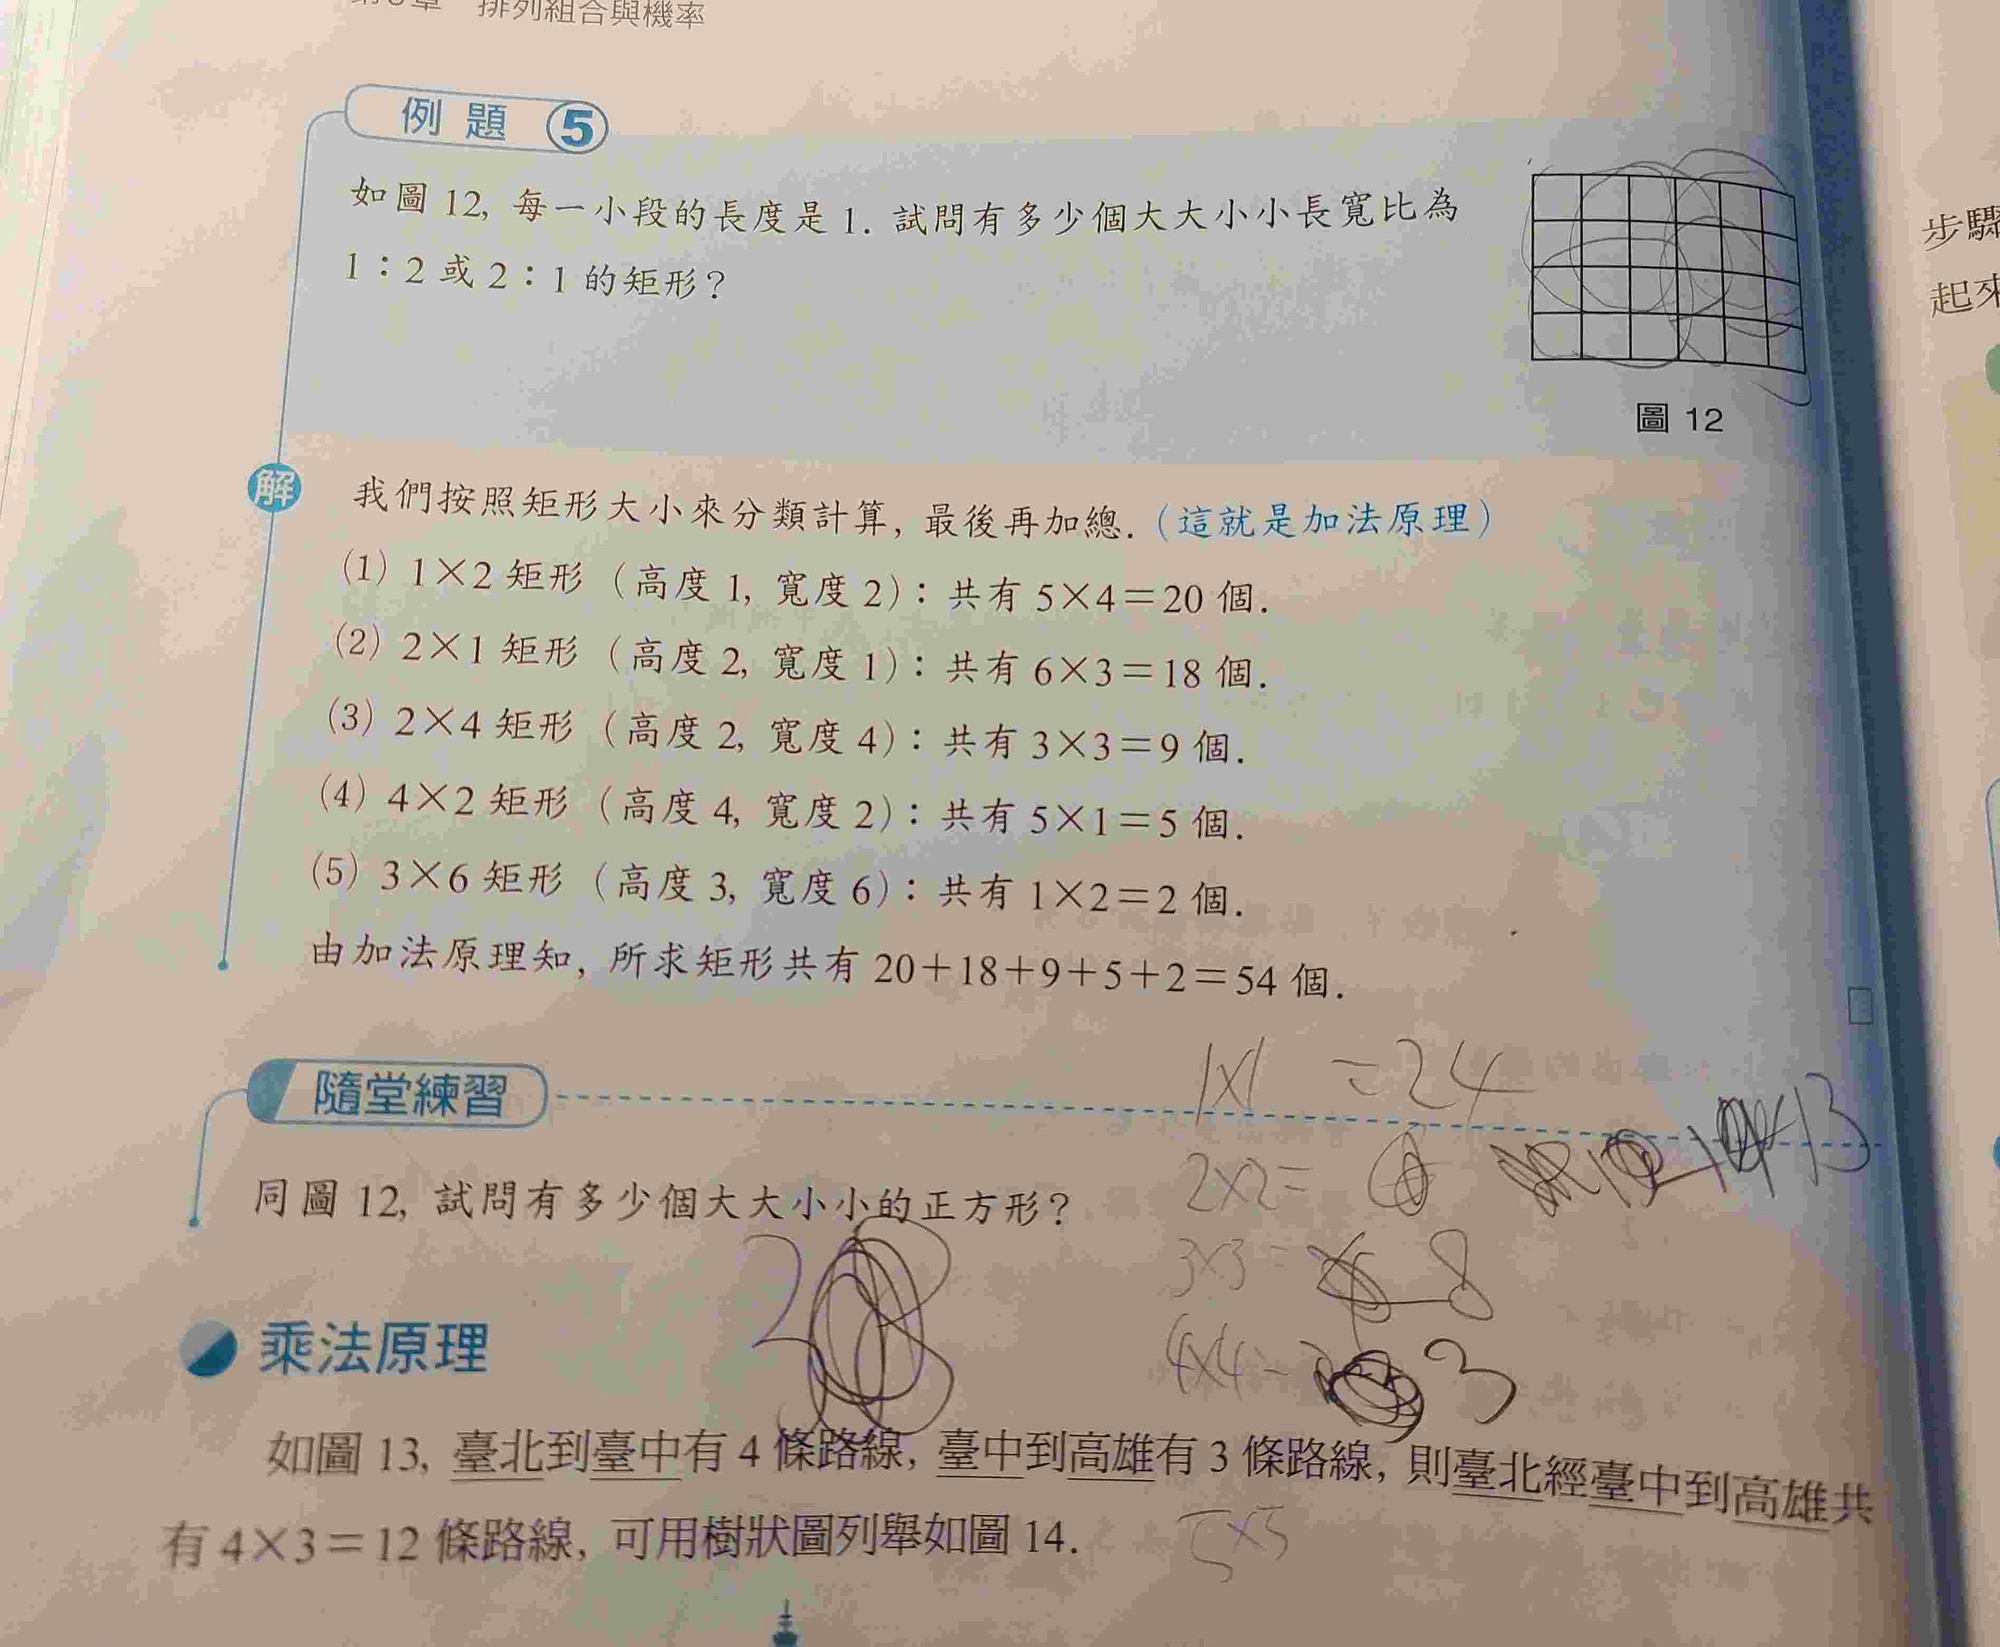 排列組合與機率
例題 5
如圖 12, 每一小段的長度是 1. 試問有多少個大大小小長寬比為
1：2 或 2：1 的矩形？
圖 12
解 我們按照矩形大小來分類計算, 最後再加總.（這就是加法原理）
(1) 1×2 矩形（高度 1, 寬度 2）：共有 5×4＝20 個.
(2) 2×1 矩形（高度 2, 寬度 1）：共有 6×3＝18 個.
(3) 2×4 矩形（高度 2, 寬度 4）：共有 3×3＝9 個.
(4) 4×2 矩形（高度 4, 寬度 2）：共有 5×1＝5 個.
(5) 3×6 矩形（高度 3, 寬度 6）：共有 1×2＝2 個.
由加法原理知, 所求矩形共有 20＋18＋9＋5＋2＝54 個.
1×1 =24
隨堂練習
2×2=
13
同圖 12, 試問有多少個大大小小的正方形？
3×3= 8
4×4= 3
乘法原理
如圖 13, 臺北到臺中有 4 條路線, 臺中到高雄有 3 條路線, 則臺北經臺中到高雄共
有 4×3＝12 條路線, 可用樹狀圖列舉如圖 14.
5×5
步驟
起來